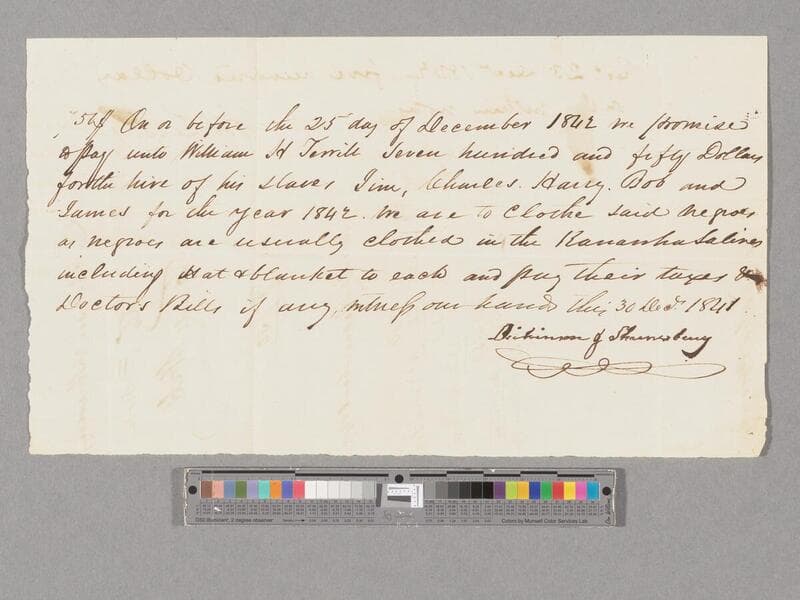 On or before the 25 day of December 1842 we promise
to pay unto William H Terrill Seven hundred and fifty Dollars
for the hire of his slaves Jim, Charles. Harry. Bob and
James for the year 1842. We are to Clothe said negroes
as negroes are usually clothed in the Kanawha Salines
including Hat & blanket to each and pay their taxes &
Doctors Bills if any, witness our hands this 30 Decr. 1841
Dickinson & Shrewsbury